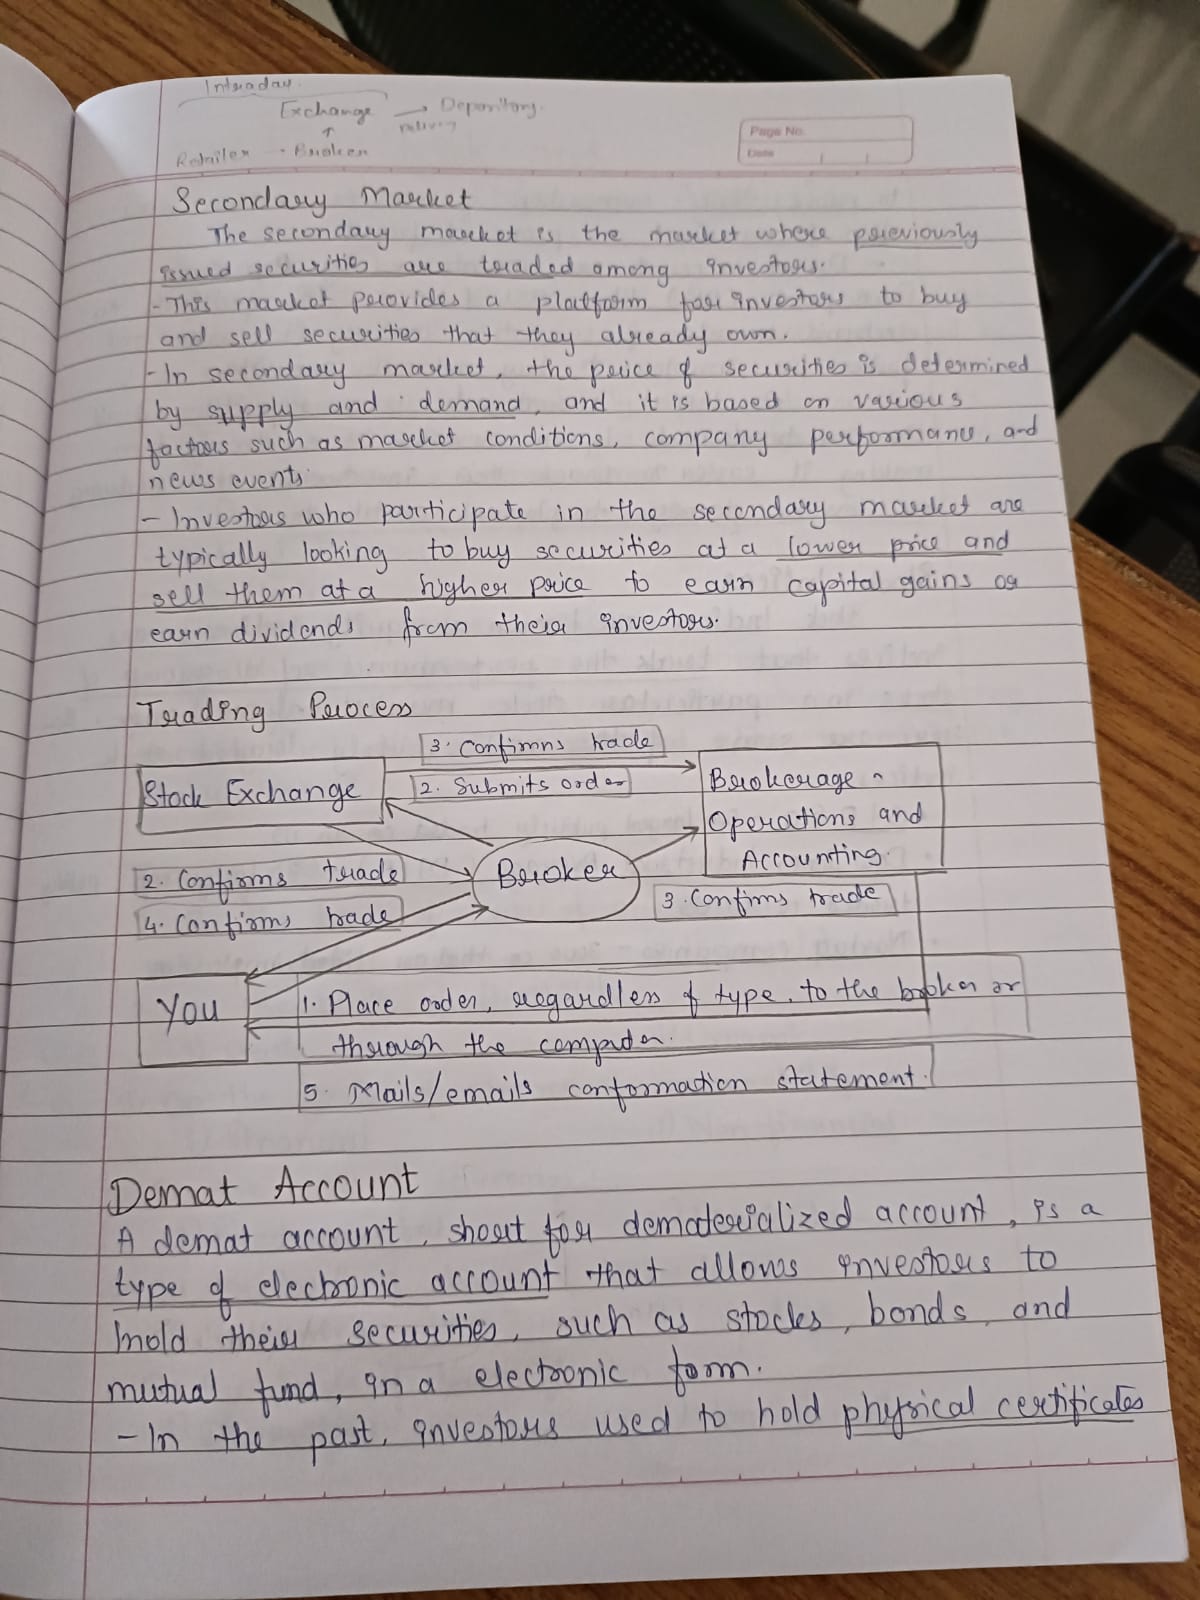 Intraday.
Exchange → Depository.
↑
Retailer - Broker
Page No.
Date
Secondary Market
The secondary market is the market where previously
issued securities are traded among investors.
- This market provides a platform for investors to buy
and sell securities that they already own.
- In secondary market, the price of securities is determined
by supply and demand, and it is based on various
factors such as market conditions, company performance, and
news events.
- Investors who participate in the secondary market are
typically looking to buy securities at a lower price and
sell them at a higher price to earn capital gains or
earn dividends from their investors.
Trading Process
3. Confirms trade
Stock Exchange
2. Submits order
Brokerage -
Operations and
Accounting.
Broker
2. Confirms trade
3. Confirms trade
4. Confirms trade
You
1. Place order, regardless of type, to the broker or
through the computer.
5. Mails/emails conformation statement.
Demat Account
A demat account, short for dematerialized account, is a
type of electronic account that allows investors to
hold their securities, such as stocks, bonds, and
mutual fund, in a electronic form.
- In the past, investors used to hold physical certificates